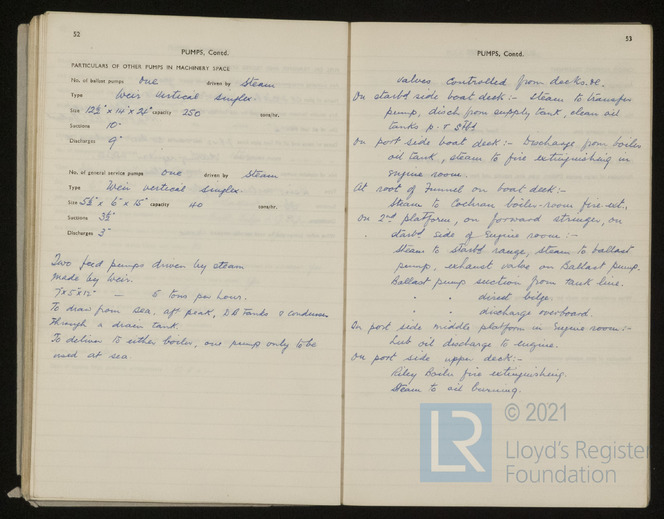 52
PUMPS, Contd.
PARTICULARS OF OTHER PUMPS IN MACHINERY SPACE
No. of ballast pumps One driven by Steam
Type Weir Vertical Simplex
Size 12½" x 14" x 24" capacity 250 tons/hr.
Suctions 10"
Discharges 9"
No. of general service pumps One driven by Steam
Type Weir vertical simplex.
Size 5½" x 6" x 15" capacity 40 tons/hr.
Suctions 3½"
Discharges 3"
Two feed pumps driven by steam
made by Weir.
7" x 5" x 12" — 5 tons per hour.
To draw from sea, aft peak, D.B. Tanks & condenser
through a drain tank.
To deliver to either boiler, one pump only to be
used at sea.
53
PUMPS, Contd.
valves controlled from decks.
On starbd side boat deck:- Steam to transfer
pump, disch from supply tank, clean oil
tanks p. & stbd
On port side boat deck:- Discharge from boiler
oil tank, steam to fire extinguishing in
engine room.
At root of Funnel on boat deck:-
Steam to Cochran boiler-room fire ext.
On 2nd platform, on forward stringer, on
starbd side of Engine room:-
Steam to starbd range, steam to ballast
pump, exhaust valve on Ballast pump.
Ballast pump suction from tank line.
" " direct bilge.
" " discharge overboard.
On port side middle platform in Engine room:-
Lub oil discharge to engine.
On port side upper deck:-
Riley Boiler fire extinguishing.
Steam to oil burning.
© 2021
LR
Lloyd's Register
Foundation